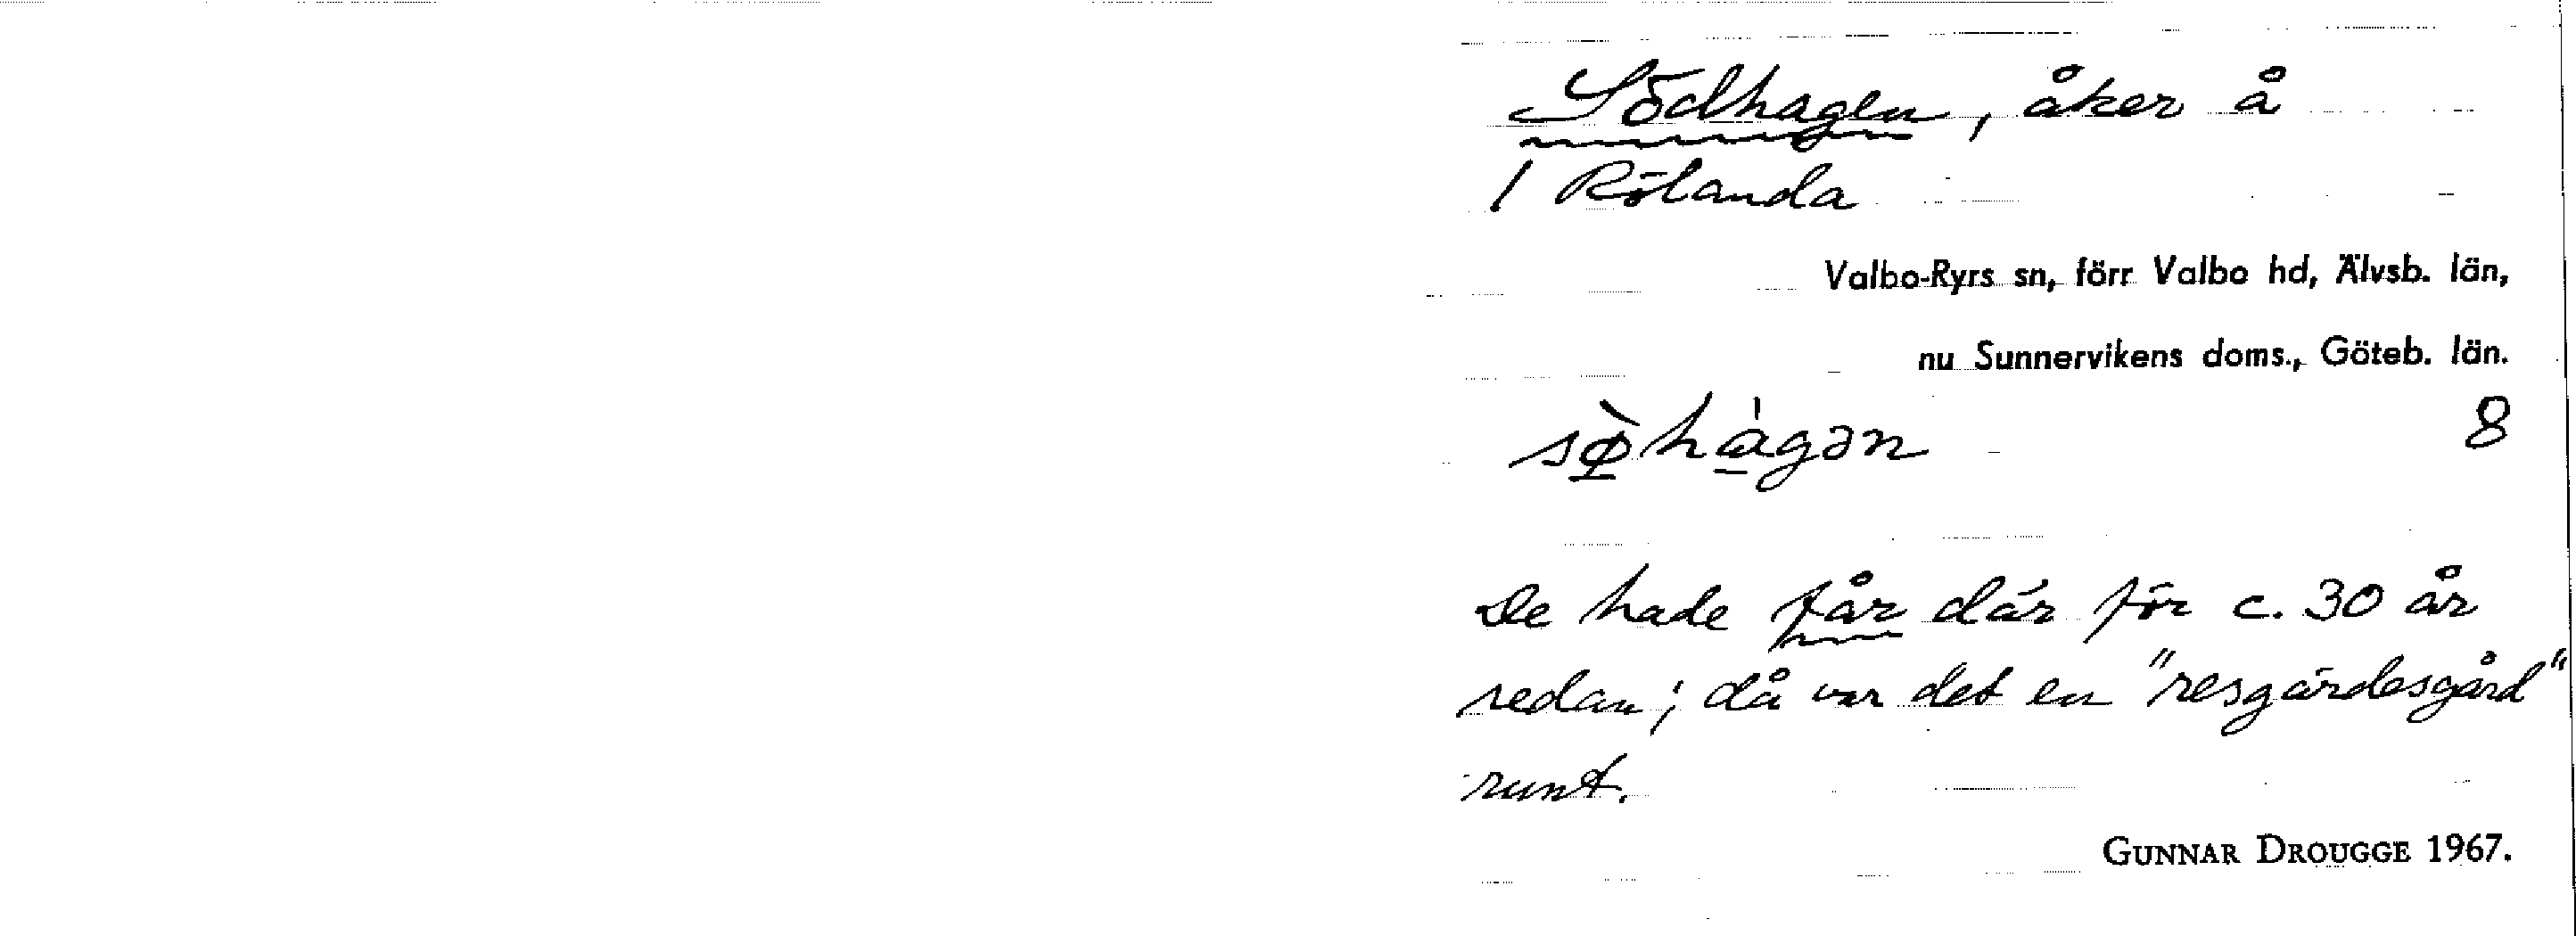 Södhagen, åker å
1 Rölanda
Valbo-Ryrs sn, förr Valbo hd, Älvsb. län,
nu Sunnervikens doms., Göteb. län.
sø̀hàgən 8
De hade får där för c. 30 år
sedan; då var det en "resgärdesgård"
runt.
GUNNAR DROUGGE 1967.